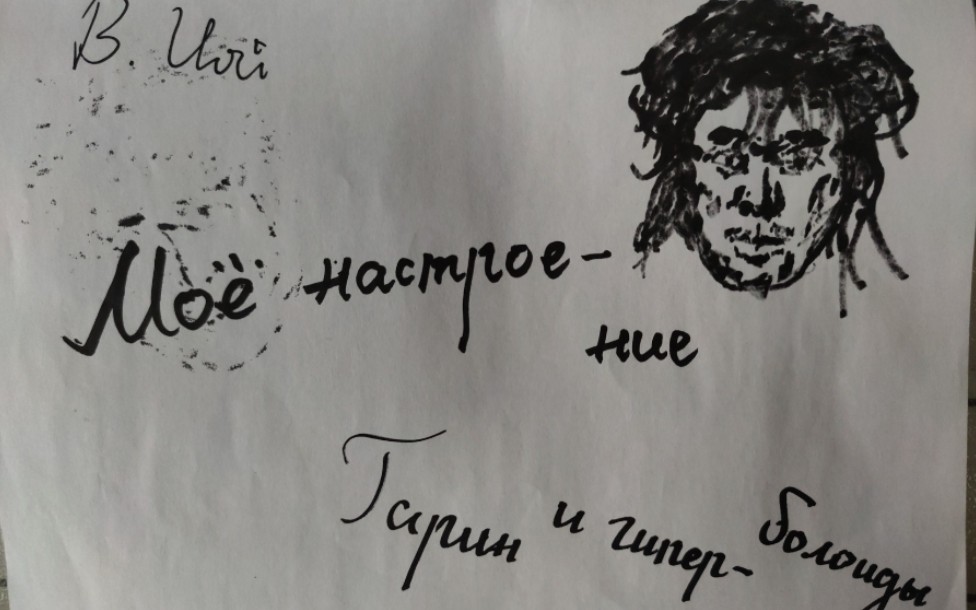 В. Цой
Моё настрое-
ние
Гарин и гипер-
болоиды